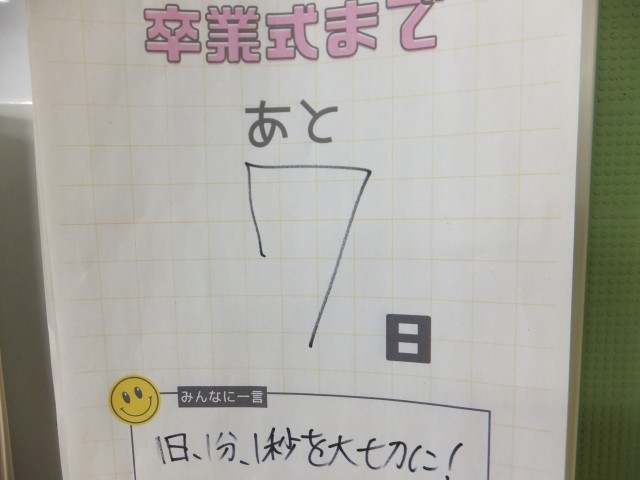 卒業式まで
あと
7
日
みんなに一言
1日、1分、1秒を大切に!